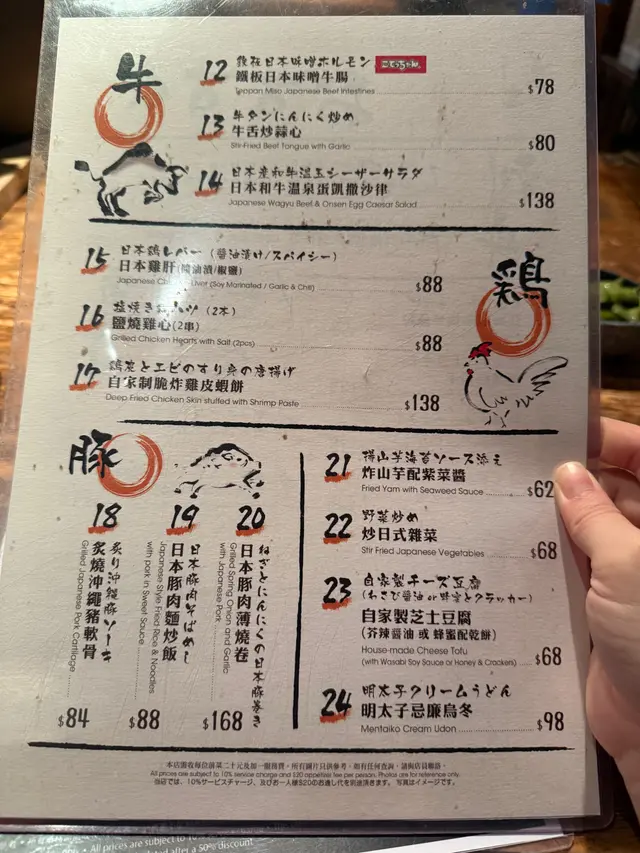 牛
12 鉄板日本味噌ホルモン こてっちゃん
鐵板日本味噌牛腸
Teppan Miso Japanese Beef Intestines $78
13 牛タンにんにく炒め
牛舌炒蒜心
Stir-Fried Beef Tongue with Garlic $80
14 日本産和牛温玉シーザーサラダ
日本和牛溫泉蛋凱撒沙律
Japanese Wagyu Beef & Onsen Egg Caesar Salad $138
鶏
15 日本鶏レバー (醤油漬け/スパイシー)
日本雞肝(醬油漬/椒鹽)
Japanese Chicken Liver (Soy Marinated / Garlic & Chili) $88
16 塩焼き鶏ハツ (2本)
鹽燒雞心(2串)
Grilled Chicken Hearts with Salt (2pcs) $88
17 鶏皮とエビのすり身の唐揚げ
自家制脆炸雞皮蝦餅
Deep Fried Chicken Skin stuffed with Shrimp Paste $138
豚
18
炙り沖縄豚ソーキ
炙燒沖繩豬軟骨
Grilled Japanese Pork Cartilage
$84
19
日本豚肉そばめし
日本豚肉麵炒飯
Japanese Style Fried Rice & Noodles
with pork in Sweet Sauce
$88
20
ねぎとにんにくの日本豚巻き
日本豚肉薄燒卷
Grilled Spring Onion and Garlic
with Japanese Pork
$168
21 揚山芋海苔ソース添え
炸山芋配紫菜醬
Fried Yam with Seaweed Sauce $62
22 野菜炒め
炒日式雜菜
Stir Fried Japanese Vegetables $68
23 自家製チーズ豆腐
(わさび醤油 or 蜂蜜とクラッカー)
自家製芝士豆腐
(芥辣醬油 或 蜂蜜配乾餅)
House-made Cheese Tofu
(with Wasabi Soy Sauce or Honey & Crackers) $68
24 明太子クリームうどん
明太子忌廉烏冬
Mentaiko Cream Udon $98
本店需收每位前菜二十元及加一服務費。所有圖片只供參考。如有任何查詢，請與店員聯絡。
All prices are subject to 10% service charge and $20 appetizer fee per person. Photos are for reference only.
当店では、10%サービスチャージ、及びお一人様$20のお通し代を別途頂きます。写真はイメージです。
All prices are subject to 10%
after a 50% discount